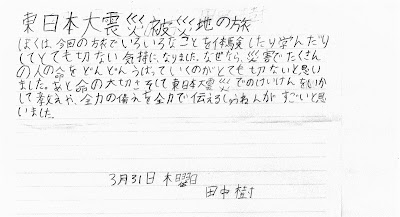 東日本大震災被災地の旅
ぼくは、今回の旅でいろいろなことを体験したり学んだり
してとても切ない気持になりました。なぜなら、災害でたくさん
の人の命をどんどんうばっていくのがとても切ないと思い
ました。あと命の大切さそして東日本大震災でのけいけんをいか
して教えや、全力の備えを全力で伝えるしゅうねんがすごいと思
いました。
3月31日 木曜日
田中樹